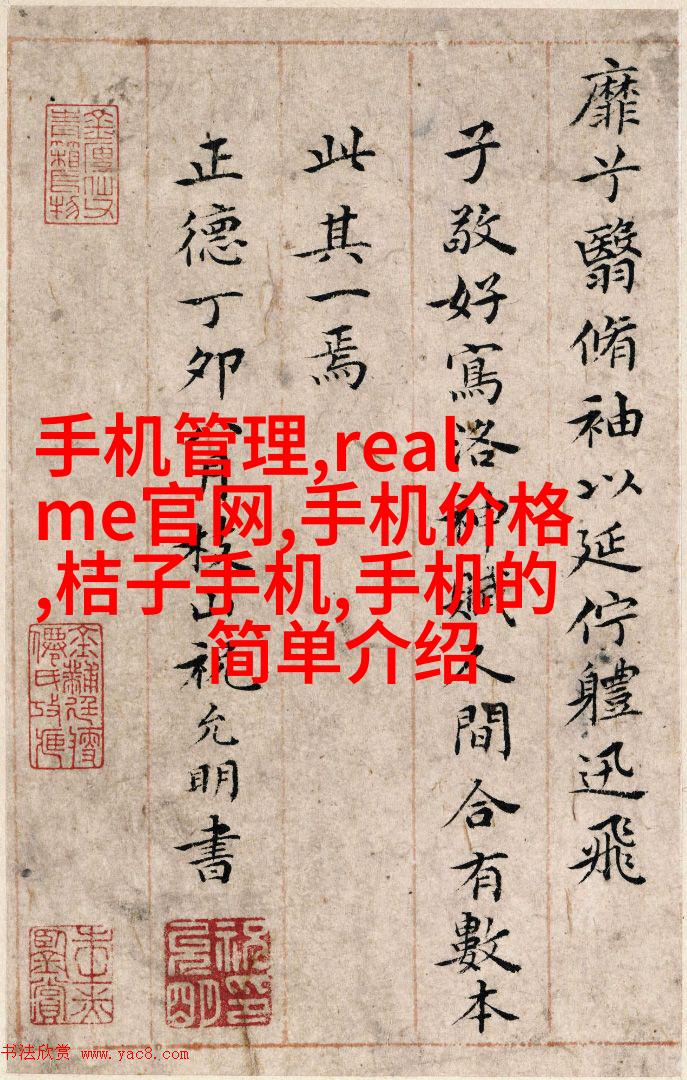 靡兮翳脩袖以延佇體迅飛
子敬好寫洛神賦人間合有數本
此其一焉
正德丁卯八月枝山祝允明書
手机管理,real
me官网,手机价格
,桔子手机,手机的
简单介绍
书法欣赏 www.yac8.com